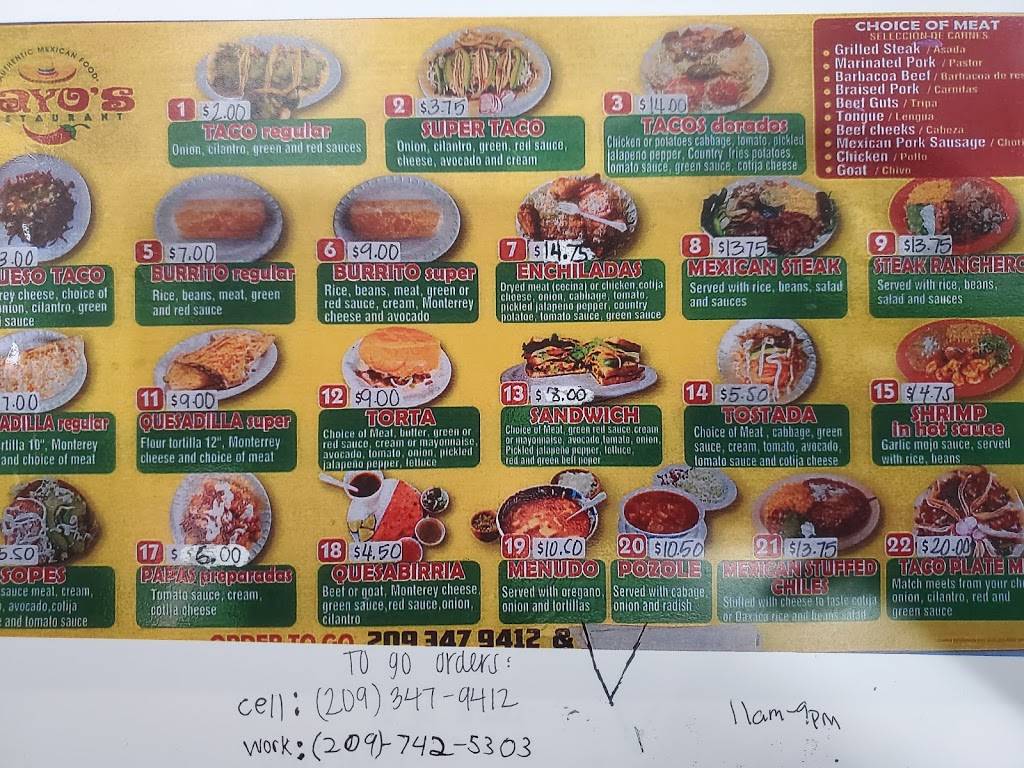 AUTHENTIC MEXICAN FOOD
AYO'S
STAURANT
CHOICE OF MEAT
SELECCION DE CARNES
Grilled Steak / Asada
Marinated Pork / Pastor
Barbacoa Beef / Barbacoa de res
Braised Pork / Carnitas
Beef Guts / Tripa
Tongue / Lengua
Beef cheeks / Cabeza
Mexican Pork Sausage / Chori
Chicken / Pollo
Goat / Chivo
1 $2.00
TACO regular
Onion, cilantro, green and red sauces
2 $3.75
SUPER TACO
Onion, cilantro, green, red sauce,
cheese, avocado and cream
3 $14.00
TACOS dorados
Chicken or potatoes cabbage, tomato, pickled
jalapeno pepper, Country fries potatoes,
tomato sauce, green sauce, cotija cheese
3.00
UESO TACO
rey cheese, choice of
nion, cilantro, green
sauce
5 $7.00
BURRITO regular
Rice, beans, meat, green
and red sauce
6 $9.00
BURRITO super
Rice, beans, meat, green or
red sauce, cream, Monterrey
cheese and avocado
7 $14.75
ENCHILADAS
Dryed meat (cecina) or chicken, cotija
cheese, onion, cabbage, tomato,
pickled jalapeno pepper, country
potatoe, tomato sauce, green sauce
8 $13.75
MEXICAN STEAK
Served with rice, beans, salad
and sauces
9 $13.75
STEAK RANCHERO
Served with rice, beans,
salad and sauces
7.00
ADILLA regular
rtilla 10", Monterey
and choice of meat
11 $9.00
QUESADILLA super
Flour tortilla 12", Monterrey
cheese and choice of meat
12 $9.00
TORTA
Choice of Meat, butter, green or
red sauce, cream or mayonnaise,
avocado, tomato, onion, pickled
jalapeño pepper, lettuce
13 $8.00
SANDWICH
Choice of Meat, green red sauce, cream
or mayonnaise, avocado, tomato, onion,
Pickled jalapeño pepper, lettuce,
red and green bell peper
14 $5.50
TOSTADA
Choice of Meat , cabbage, green
sauce, cream, tomato, avocado,
tomato sauce and cotija cheese
15 $14.75
SHRIMP
in hot sauce
Garlic mojo sauce, served
with rice, beans
5.50
SOPES
sauce meat, cream,
, avocado, cotija
e and tomato sauce
17 $6.00
PAPAS preparadas
Tomato sauce, cream,
cotija cheese
18 $4.50
QUESABIRRIA
Beef or goat, Monterey cheese,
green sauce, red sauce, onion,
cilantro
19 $10.00
MENUDO
Served with oregano,
onion and tortillas
20 $10.50
POZOLE
Served with cabage,
onion and radish
21 $13.75
MEXICAN STUFFED
CHILES
Stuffed with cheese to taste cotija
or Oaxaca rice and beans salad
22 $20.00
TACO PLATE M
Match meets from your ch
onion, cilantro, red and
green sauce
ORDER TO GO 209 347 9412 &
TO go orders:
cell: (209) 347-9412
work: (209)-742-5303
11am-9pm